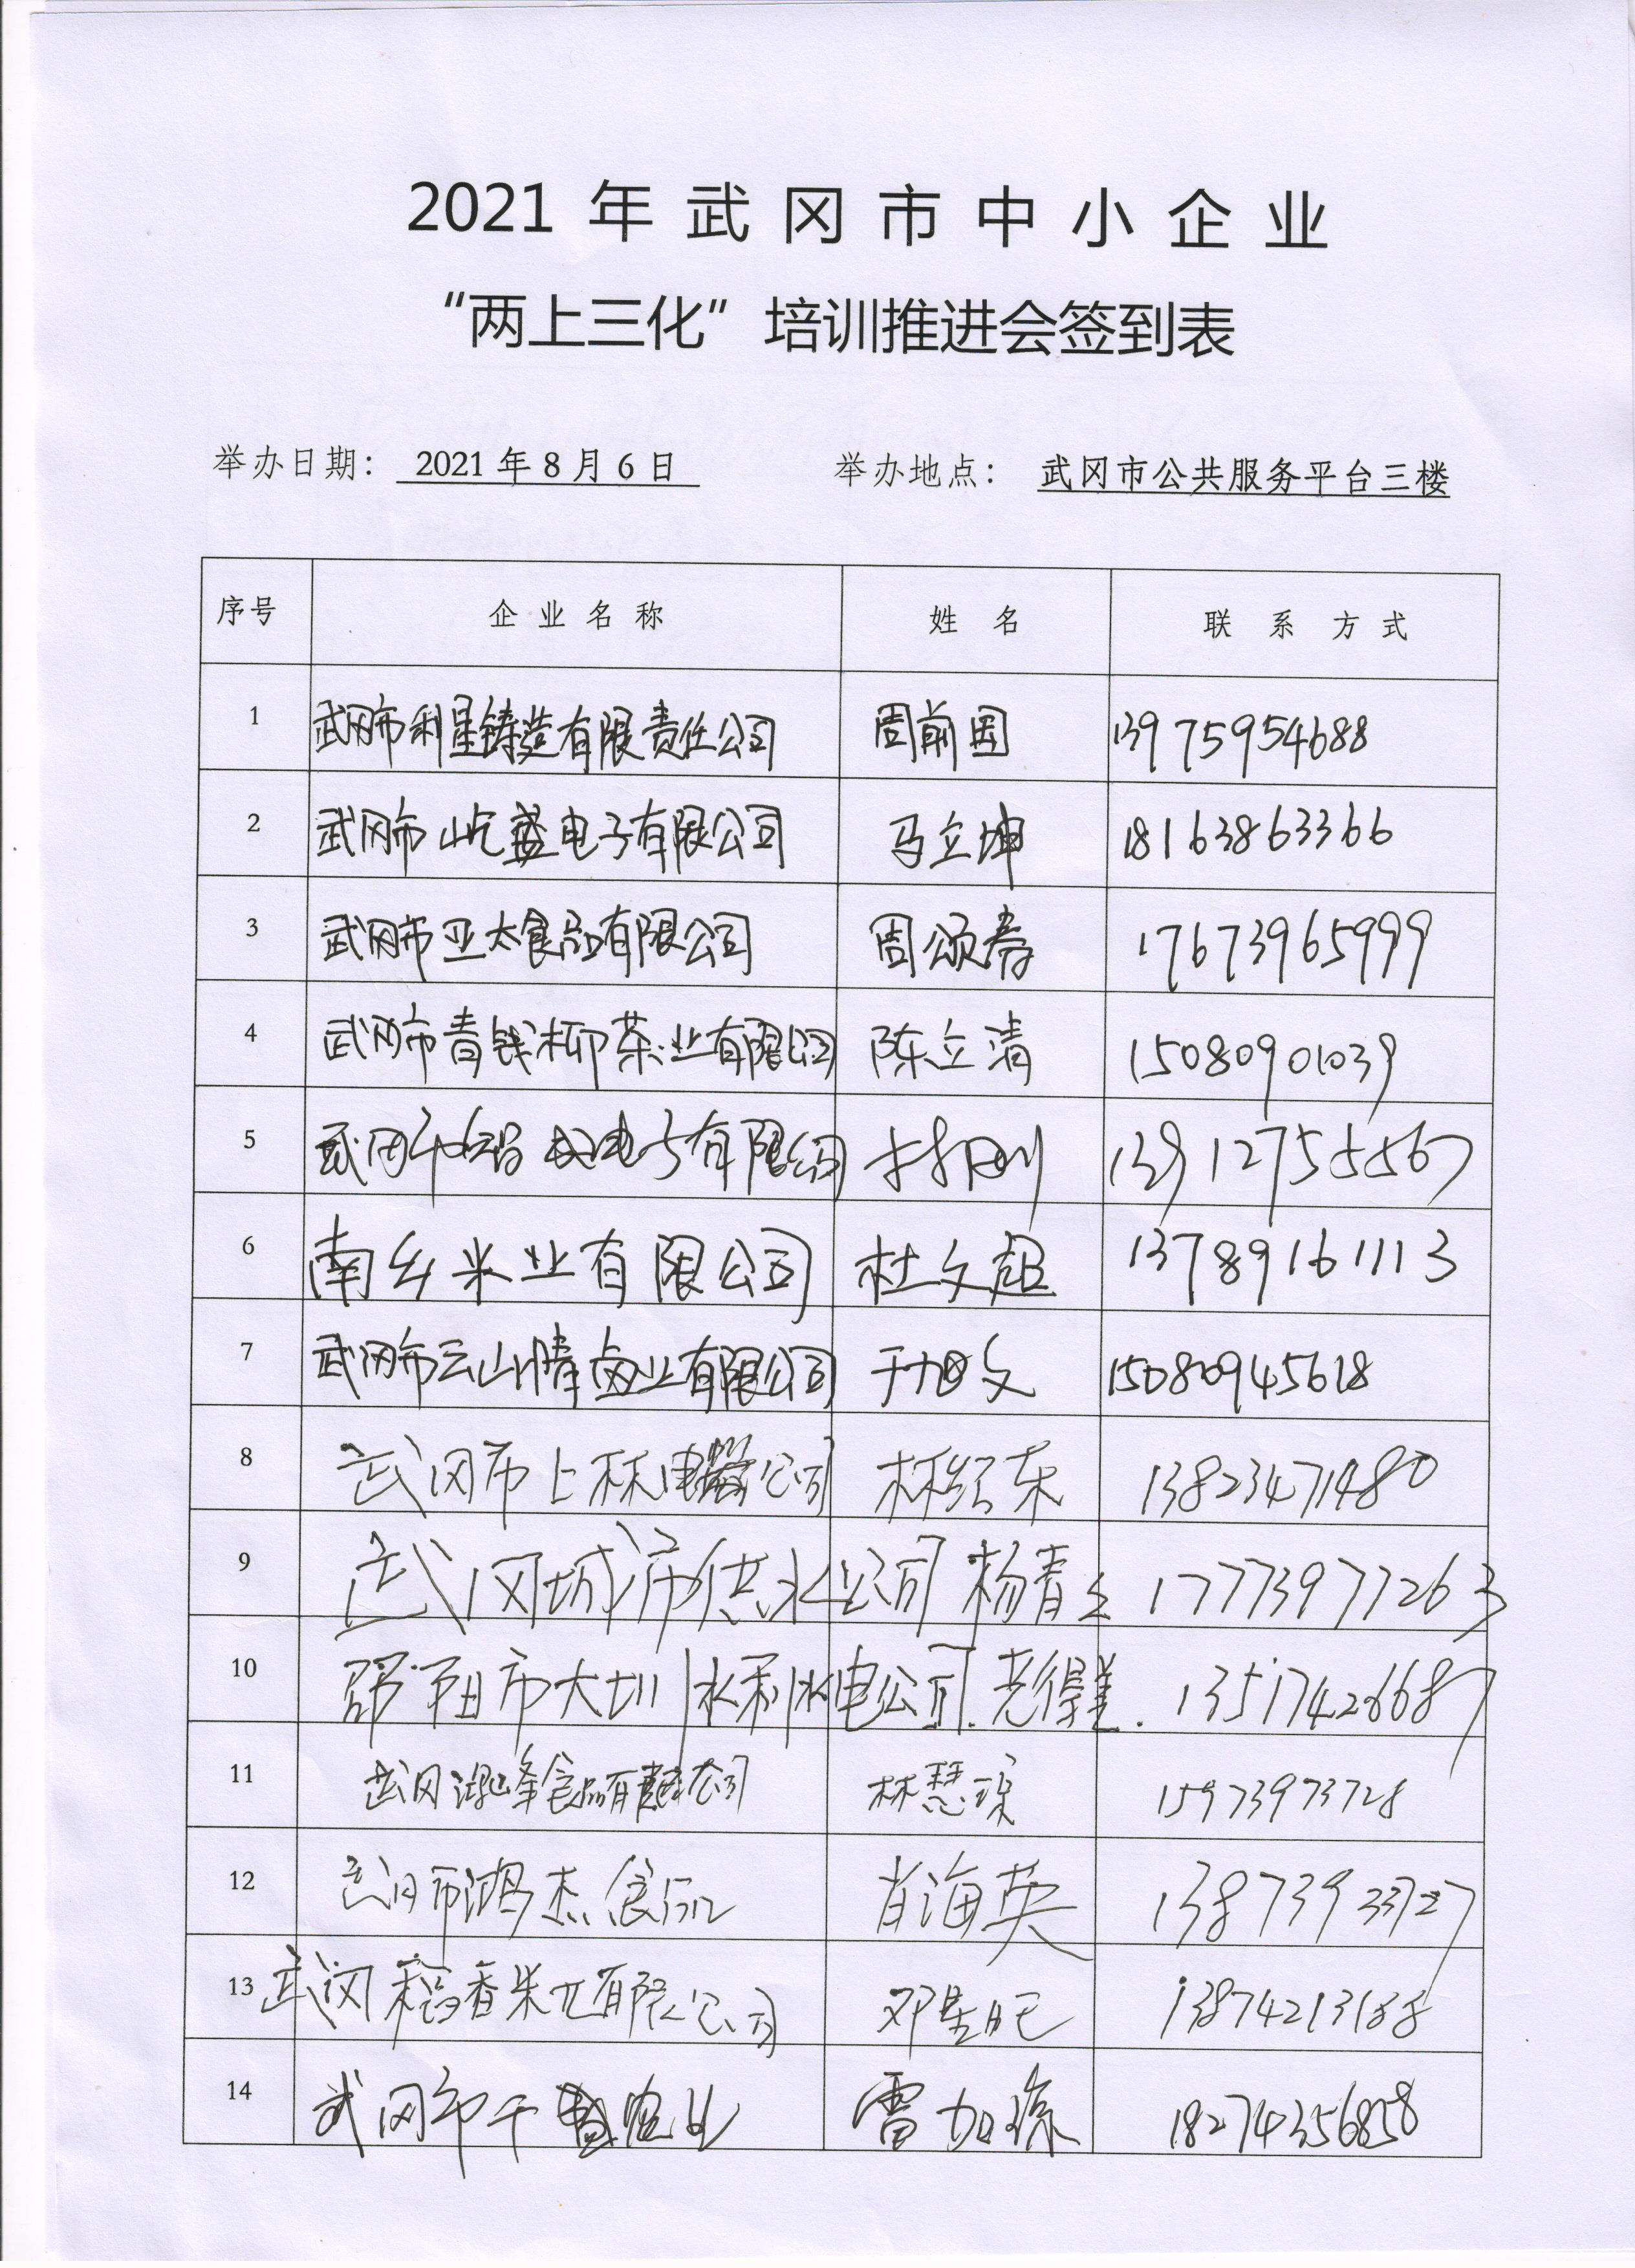 2021 年 武 冈 市 中 小 企 业
“两上三化”培训推进会签到表
举办日期： 2021 年 8 月 6 日 举办地点： 武冈市公共服务平台三楼
序号 企 业 名 称 姓 名 联 系 方 式
1 武冈市利星铸造有限责任公司 周前国 13975954688
2 武冈市屹蓝电子有限公司 马立坤 18163863366
3 武冈市亚太食品有限公司 周颂春 17673965999
4 武冈市青钱柳茶业有限公司 陈立清 15080901039
5 武冈市 电子有限公司 13912755567
6 南乡米业有限公司 杜文超 13789161113
7 武冈市云山情卤业有限公司 于旭文 15080945618
8 武冈市上林电器公司 林红东 13823471480
9 武冈城市供水公司 杨青 17773977263
10 邵阳市大圳水利水电公司. 13517426687
11 武冈 峰食品有限公司 林慧琼 15973973728
12 武冈市鸿杰食品 肖海英 13873933727
13 武冈稻香米业有限公司 邓星旺 13874213188
14 武冈市千 农业 雷加 18274356858